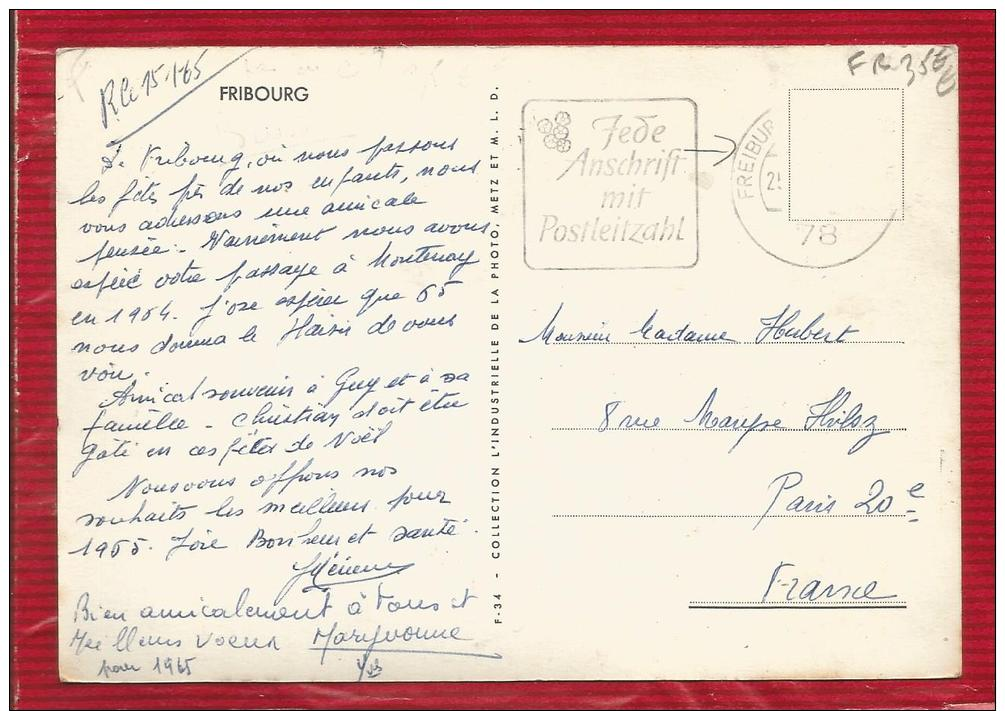 R le 15.1.65
FRIBOURG
De Fribourg, où nous passons
les fêtes près de nos enfants, nous
vous adressons une amicale
pensée. Vainement nous avons
espéré votre passage à Montenay
en 1964. J'ose espérer que 65
nous donnera le plaisir de vous
voir.
Amical souvenir à Guy et à sa
famille - Christian doit être
gâté en ces fêtes de Noël
Nous vous offrons nos
souhaits les meilleurs pour
1965. Joie Bonheur et santé.
Bien amicalement à Tous et
Meilleurs voeux Maryvonne
pour 1965 Yves
F-34 - COLLECTION L'INDUSTRIELLE DE LA PHOTO, METZ ET M. L. D.
Jede
Anschrift
mit
Postleitzahl
FREIBUR
78
Monsieur Madame Hubert
8 rue Maryse Hilsz
Paris 20e
France